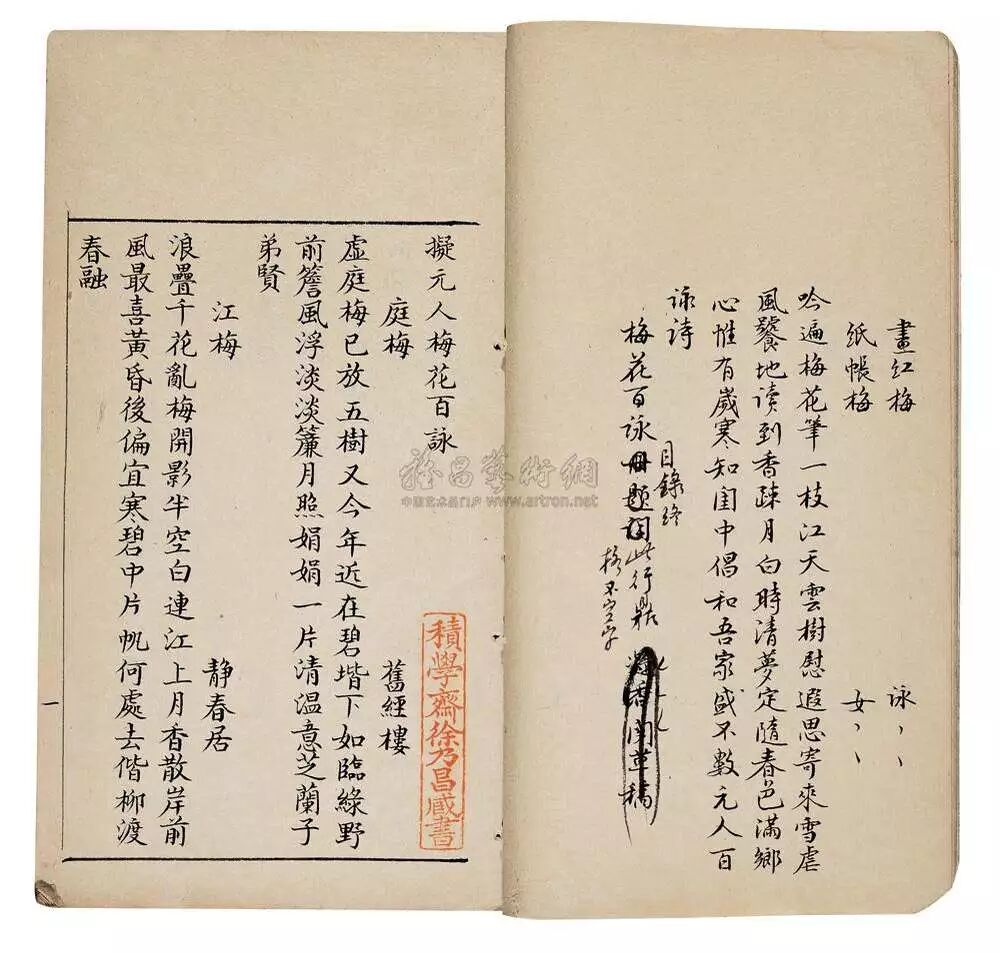 畫紅梅 詠、、
紙帳梅 女、、
吟遍梅花筆一枝江天雲樹慰遐思寄來雪虐
風饕地读到香疎月白時清夢定隨春色滿鄉
心惟有嵗寒知閨中倡和吾家盛不數元人百
詠詩
目錄終
梅花百詠冊題詞此行鼎
格不空字
香閣草稿
擬元人梅花百詠
庭梅 舊經樓
虛庭梅已放五樹又今年近在碧堦下如臨綠野
前簷風浮淡淡簾月照娟娟一片清溫意芝蘭子
弟賢
江梅 靜春居
浪疊千花亂梅開影半空白連江上月香散岸前
風最喜黃昏後偏宜寒碧中片帆何處去偕柳渡
春融
一
積學齋徐乃昌藏書
雅昌藝術網
中国艺术品门户 www.artron.net